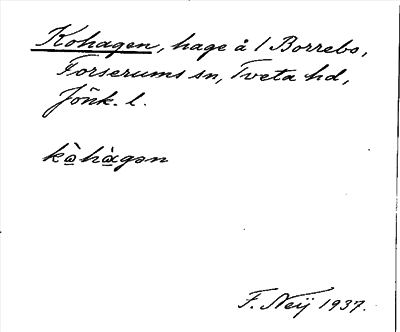 Kohagen, hage å 1 Borrebo,
Forserums sn, Tveta hd,
Jönk. l.
kò̲hà̲gən
F. Neij 1937.